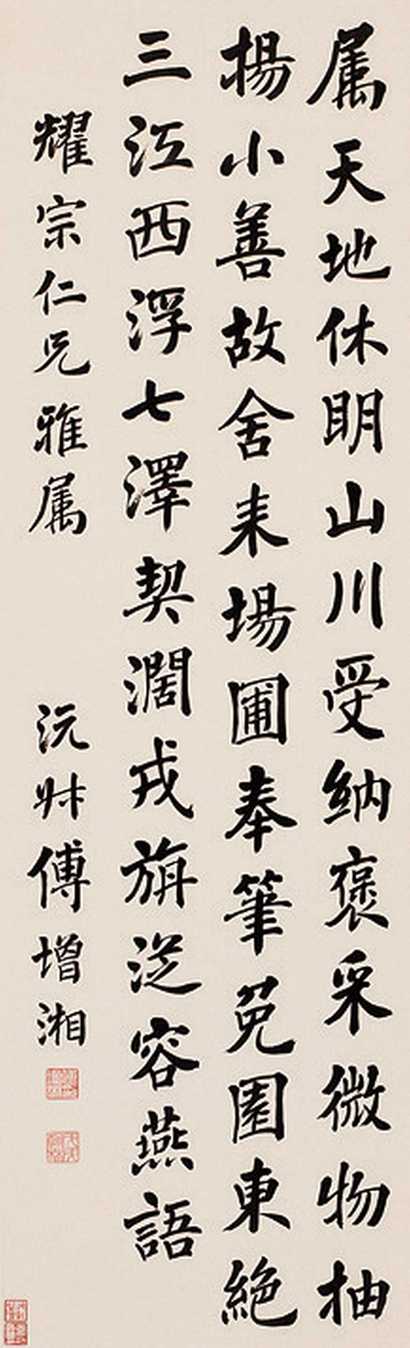 属天地休明山川受纳褒采微物抽
揚小善故舍耒場圃奉筆兔園東絶
三江西浮七澤契濶戎旃從容燕語
耀宗仁兄雅属
沅叔傅增湘